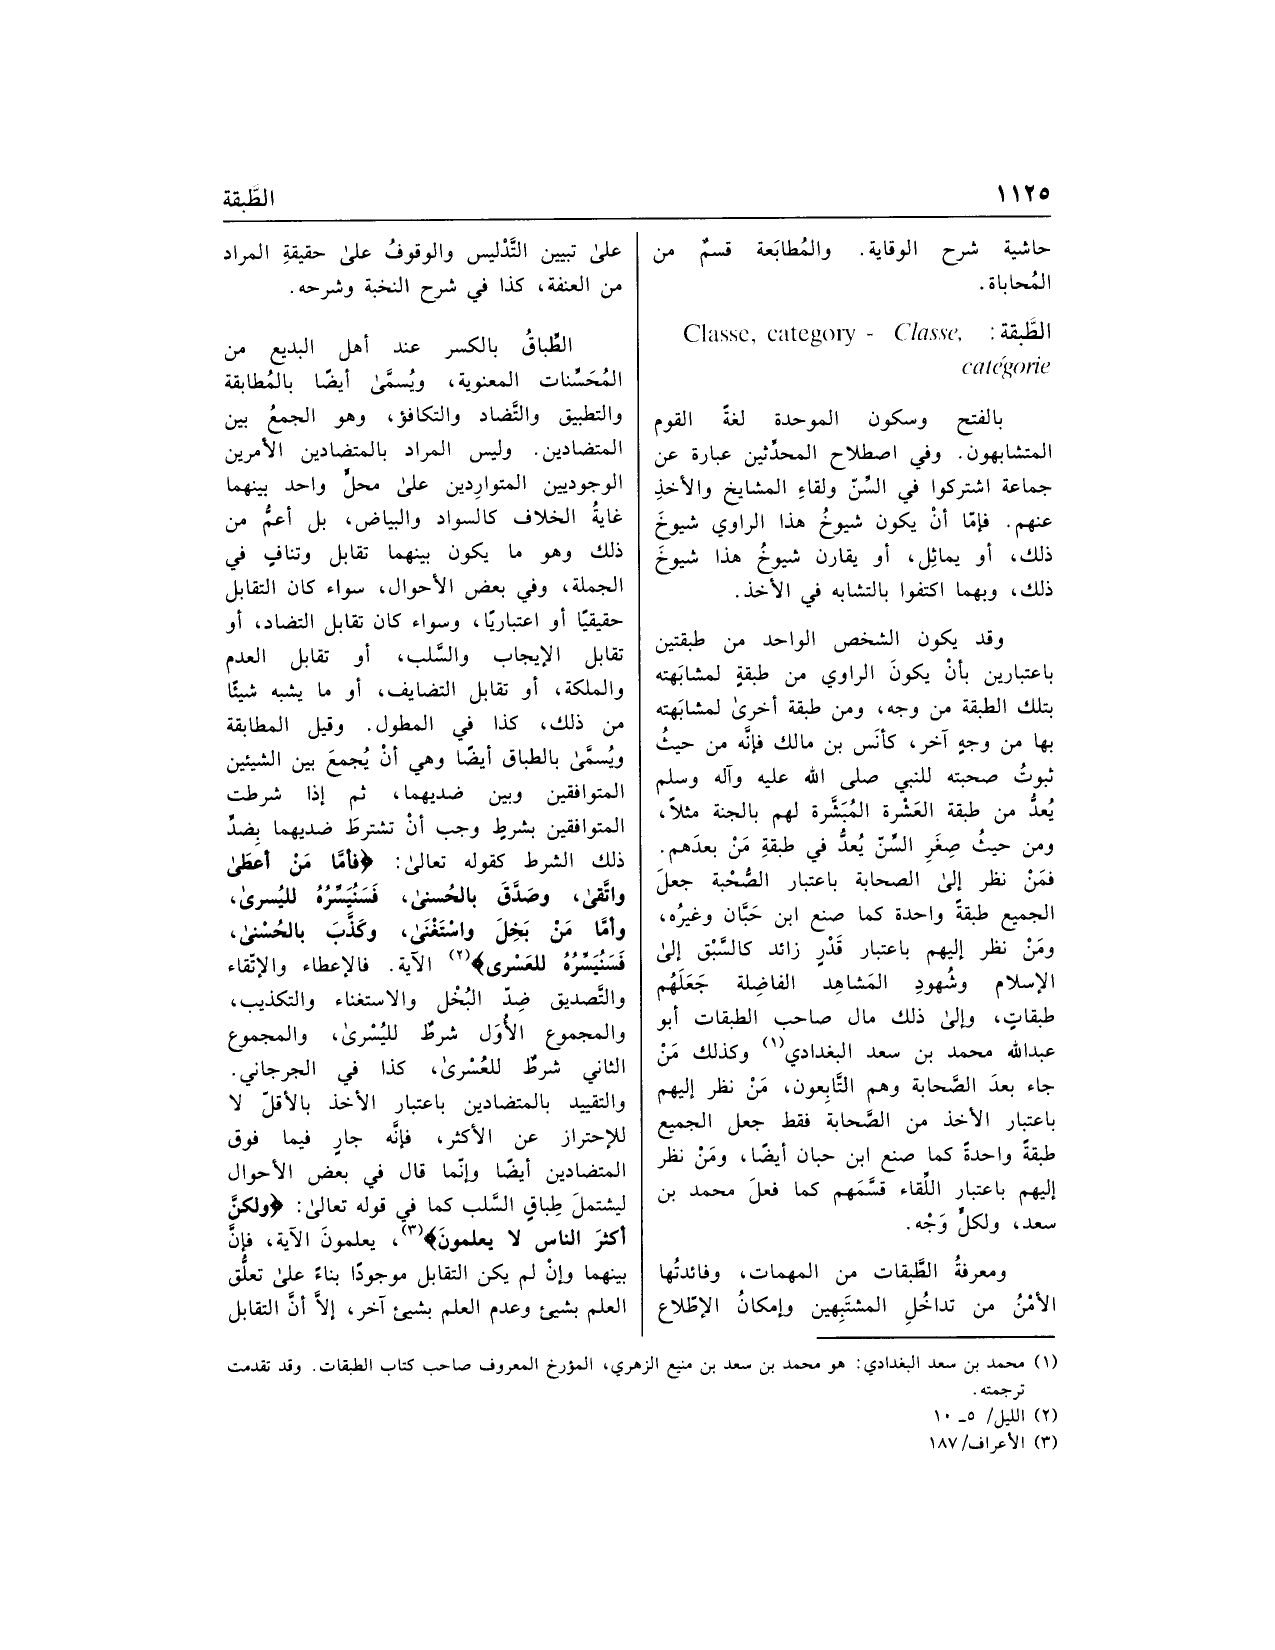 ١١٢٥
الطَّبقة
حاشية شرح الوقاية. والمُطابَعة قسمٌ من
المُحاباة.
الطَّبقة: Classe, category - Classe,
catégorie
بالفتح وسكون الموحدة لغةً القوم
المتشابهون. وفي اصطلاح المحدِّثين عبارة عن
جماعة اشتركوا في السِّنّ ولقاءِ المشايخ والأخذِ
عنهم. فإمّا أنْ يكون شيوخُ هذا الراوي شيوخَ
ذلك، أو يماثِل، أو يقارن شيوخُ هذا شيوخَ
ذلك، وبهما اكتفوا بالتشابه في الأخذ.
وقد يكون الشخص الواحد من طبقتين
باعتبارين بأنْ يكونَ الراوي من طبقةٍ لمشابَهته
بتلك الطبقة من وجه، ومن طبقة أخرىٰ لمشابَهته
بها من وجهٍ آخر، كأنَس بن مالك فإنَّه من حيثُ
ثبوتُ صحبته للنبي صلى الله عليه وآله وسلم
يُعدُّ من طبقة العَشْرة المُبَشَّرة لهم بالجنة مثلاً،
ومن حيثُ صِغَرِ السِّنّ يُعدُّ في طبقةِ مَنْ بعدَهم.
فمَنْ نظر إلىٰ الصحابة باعتبار الصُّحْبة جعلَ
الجميع طبقةً واحدة كما صنع ابن حَبَّان وغيرُه،
ومَنْ نظر إليهم باعتبار قَدْرٍ زائد كالسَّبْق إلىٰ
الإسلام وشُهودِ المَشاهِد الفاضِلة جَعَلَهُم
طبقاتٍ، وإلىٰ ذلك مال صاحب الطبقات أبو
عبدالله محمد بن سعد البغدادي(١) وكذلك مَنْ
جاء بعدَ الصَّحابة وهم التَّابِعون، مَنْ نظر إليهم
باعتبار الأخذ من الصَّحابة فقط جعل الجميع
طبقةً واحدةً كما صنع ابن حبان أيضًا، ومَنْ نظر
إليهم باعتبار اللِّقاء قسَّمَهم كما فعلَ محمد بن
سعد، ولكلٍّ وَجْه.
ومعرفةُ الطَّبقات من المهمات، وفائدتُها
الأمْنُ من تداخُلِ المشتَبِهين وإمكانُ الإطّلاع
علىٰ تبيين التَّدْليس والوقوفُ علىٰ حقيقةِ المراد
من العنفة، كذا في شرح النخبة وشرحه.
الطِّباقُ بالكسر عند أهل البديع من
المُحَسِّنات المعنوية، ويُسمَّىٰ أيضًا بالمُطابقة
والتطبيق والتَّضاد والتكافؤ، وهو الجمعُ بين
المتضادين. وليس المراد بالمتضادين الأمرين
الوجوديين المتوارِدين علىٰ محلٍّ واحد بينهما
غايةُ الخلاف كالسواد والبياض، بل أعمُّ من
ذلك وهو ما يكون بينهما تقابل وتنافٍ في
الجملة، وفي بعض الأحوال، سواء كان التقابل
حقيقيًا أو اعتباريًا، وسواء كان تقابل التضاد، أو
تقابل الإيجاب والسَّلب، أو تقابل العدم
والملكة، أو تقابل التضايف، أو ما يشبه شيئًا
من ذلك، كذا في المطول. وقيل المطابقة
ويُسمَّىٰ بالطباق أيضًا وهي أنْ يُجمعَ بين الشيئين
المتوافقين وبين ضديهما، ثم إذا شرطت
المتوافقين بشرطٍ وجب أنْ تشترطَ ضديهما بِضدِّ
ذلك الشرط كقوله تعالىٰ: ﴿فأمَّا مَنْ أعطَىٰ
واتَّقىٰ، وصَدَّقَ بالحُسنىٰ، فَسَنُيَسِّرُهُ لليُسرىٰ،
وأمَّا مَنْ بَخِلَ واسْتَغْنَىٰ، وكَذَّبَ بالحُسْنىٰ،
فَسَنُيَسِّرُهُ للعَسْرى﴾(٢) الآية. فالإعطاء والإتّقاء
والتَّصديق ضِدّ البُخْل والاستغناء والتكذيب،
والمجموع الأُوَل شرطٌ لليُسْرىٰ، والمجموع
الثاني شرطٌ للعُسْرىٰ، كذا في الجرجاني.
والتقييد بالمتضادين باعتبار الأخذ بالأقلّ لا
للإحتراز عن الأكثر، فإنَّه جارٍ فيما فوق
المتضادين أيضًا وإنّما قال في بعض الأحوال
ليشتملَ طِباقٍ السَّلب كما في قوله تعالىٰ: ﴿ولكنَّ
أكثرَ الناس لا يعلمونَ﴾(٣)، يعلمونَ الآية، فإنَّ
بينهما وإنْ لم يكن التقابل موجودًا بناءً علىٰ تعلُّق
العلم بشيئ وعدم العلم بشيئ آخر، إلاَّ أنَّ التقابل
(١) محمد بن سعد البغدادي: هو محمد بن سعد بن منيع الزهري، المؤرخ المعروف صاحب كتاب الطبقات. وقد تقدمت
ترجمته.
(٢) الليل/ ٥ـ ١٠
(٣) الأعراف/١٨٧